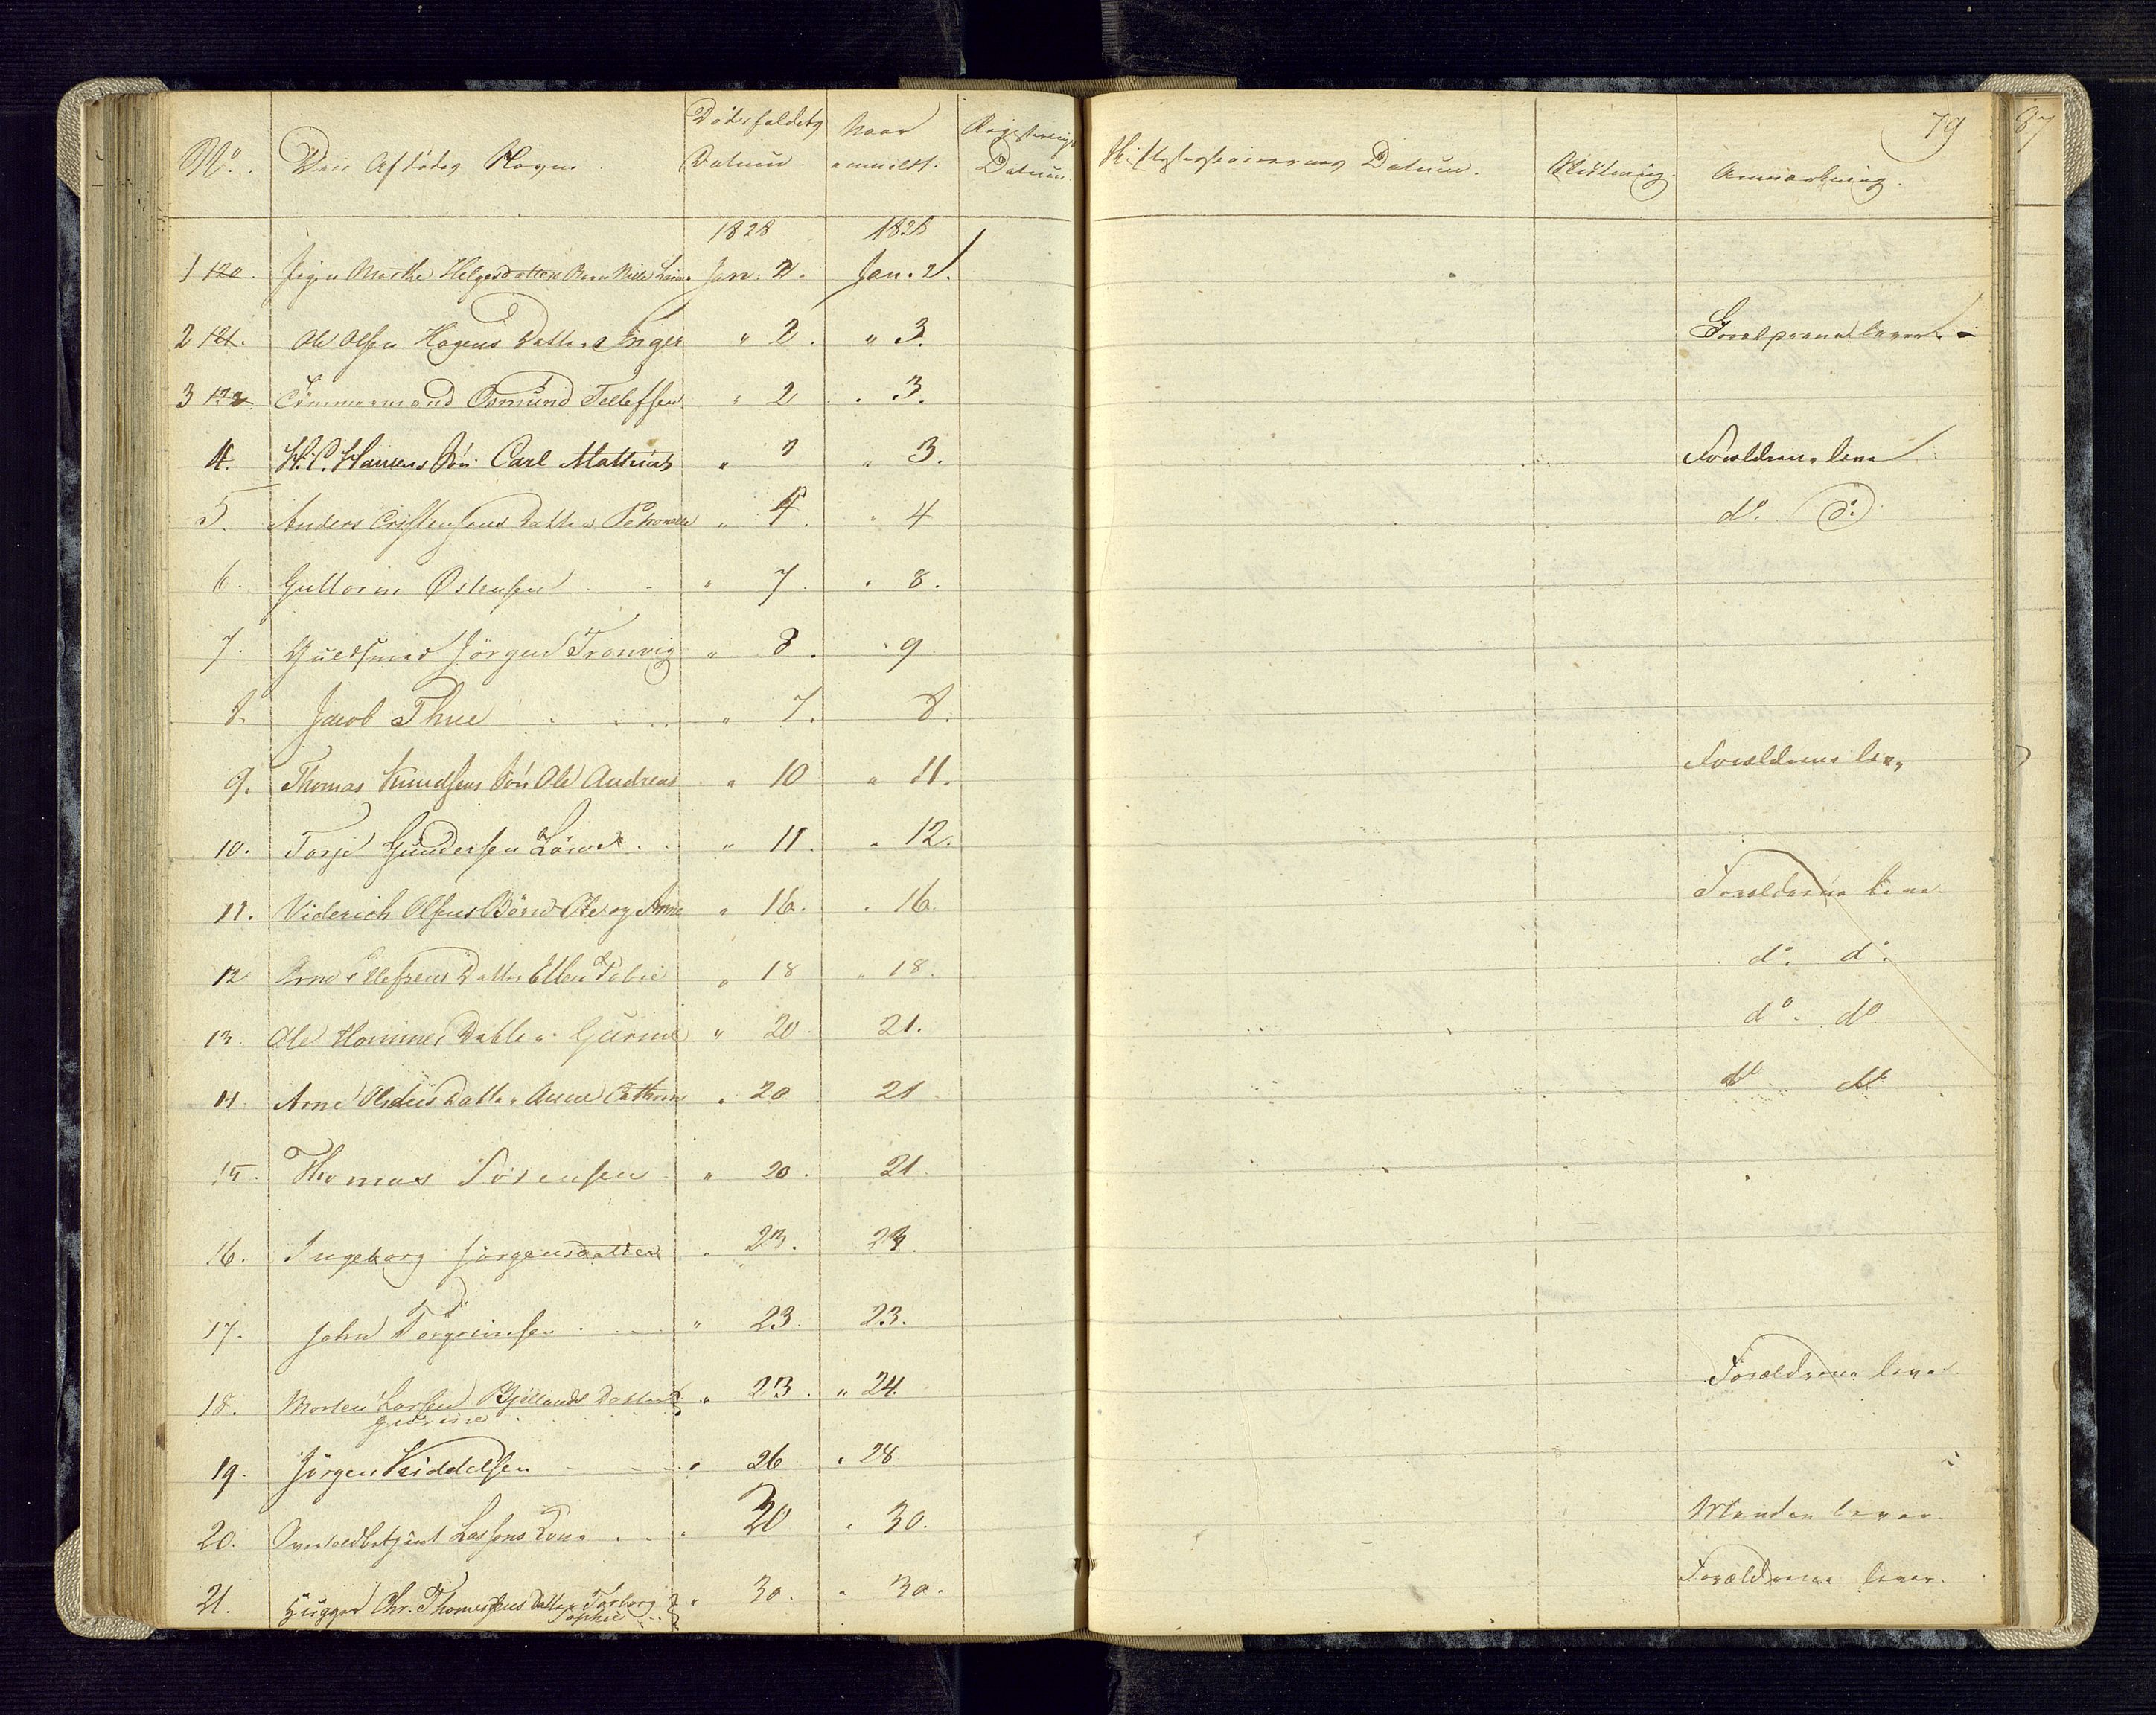 No. Den Afdödes Navn Dödsfaldets Datum Naar anmeldt. Registrerings Datum Skiftesamlingernes Datum. Slutning. Anmærkning. 79 87
1828 1828
1 120. Pigen Marthe Helgesdatters Barn Jan: 2. Jan. 2.
2 121. Ole Olsen Hagens Datter Inger " 2. " 3. Forældrene lever
3 122. Tömmermand Osmund Tellefsen " 2 " 3.
4. H. C. Hansens Sön Carl Mathias " 2 " 3. Forældrene leve
5. Anders Cristensens Datter Petronelle " 4. " 4 do. do.
6. Guttorm Ostensen " 7. " 8.
7. Guldsmed Jörgen Tronvig " 8. " 9
8. Jacob Thue " 7. 8.
9. Thomas Knudsens Sön Ole Andreas " 10 " 11. Forældrene lever
10. Torje Gundersen " 11. " 12.
11. Viderich Olsens Börn Ole og Anne " 16. " 16. Forældrene leve
12 Arne Datter Ellen " 18 " 18. do. do.
13. Ole Hommes Datter Gurine " 20 21. do. do
14. Arne Olsens Datter Anne Cathrine " 20 21 do do
15. Thomas Sörensen " 20. 21
16. Ingeborg Jörgensdatter " 23. 23.
17. John Torgrimsen " 23. 23.
18. Morten Larsen Bjellands Datter " 23. " 24. Forældrene lever
Gurine
19. Jörgen Kiddelsen " 26 " 28
20. Lassens Kone " 30 " 30. Manden lever.
21. Hugger Chr. Thomesens Datter Torborg " 30. " 30. Forældrene lever.
Sophie